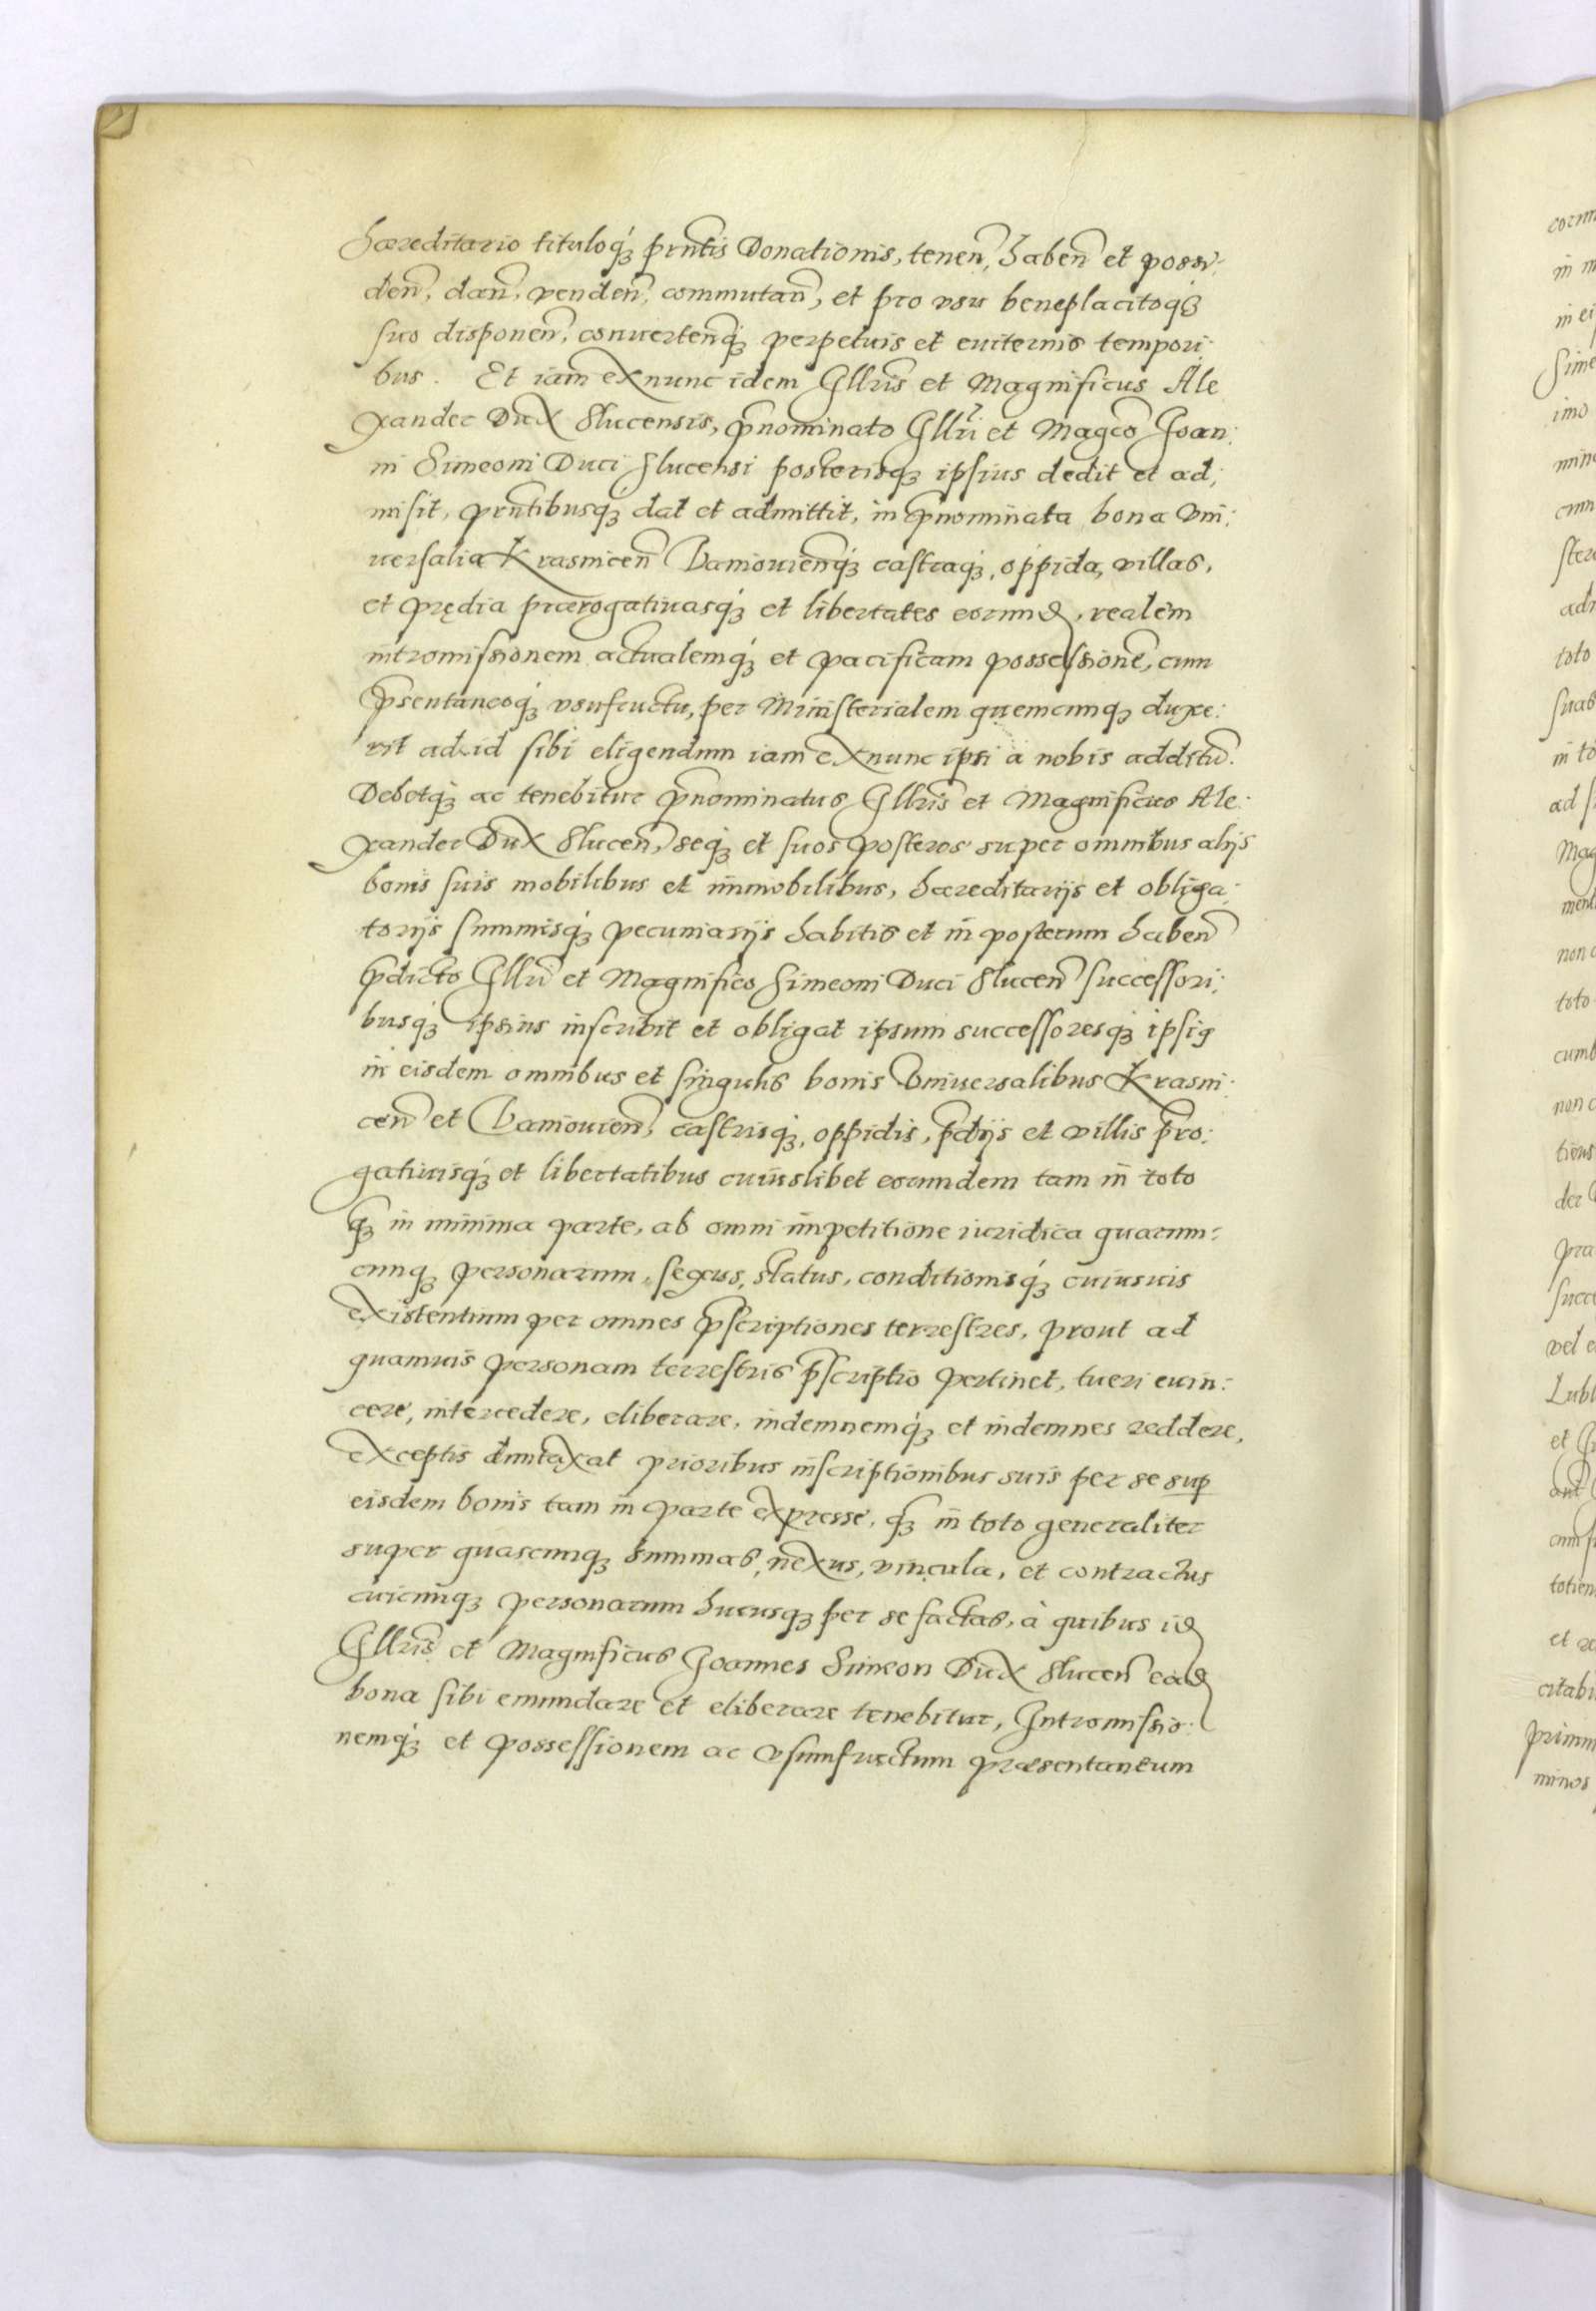 hæreditario tituloq́ꝫ prñtis Donationis, tenen̄, haben̄ et possi:
den̄, dan̄, venden̄, commutan̄, et pro vsu beneplacitoqꝫ
suo disponen̄, conuertenq́ꝫ perpetuis et euiternis tempori:
bus. Et iam ex nunc idem Illr̃is et Magnificus Ale
xander Dux Slucensis, p̃nominato Illri et Magco Joan:
ni Simeoni Duci Slucensi posterisqꝫ ipsius dedit et ad:
misit, prñtibusqꝫ dat et admittit, in p̃nominata bona Vni:
uersalia Krasnicen̄ Daniouienq́ꝫ castraqꝫ, oppida, villas,
et prędia prærogatiuasq́ꝫ et libertates eorund, realem
intromissionem actualemq́ꝫ et pacificam possessionē, cum
p̃sentaneoq́ꝫ vsufructu, per Ministerialem quemcunqꝫ duxe:
rit ad id sibi eligendum iam ex nunc ipsi a nobis additū.
Debetq́ꝫ ac tenebitur p̃nominatus Illr̃is et Magnificus Ale:
xander Dux Slucen̄, seqꝫ et suos posteros super omnibus alijs
bonis suis mobilibus et immobilibus, hæreditarijs et obliga:
torijs summisq́ꝫ pecuniarijs habitis et in posterum haben̄
p̃dicto Illri et Magnifico Simeoni Duci Slucen̄ successori:
busqꝫ ipsius inscribit et obligat ipsum successoresq́ꝫ ipsiꝰ
in eisdem omnibus et singulis bonis Vniuersalibus Krasni:
cen̄ et Daniouien̄, castrisq́ꝫ, oppidis, p̃dijs et villis p̃ro:
gatiuisq́ꝫ et libertatibus cuiuslibet eorundem tam in toto
qꝫ in minima parte, ab omni impetitione iuridica quarum:
cunqꝫ personarum, sexus, status, conditionisq́ꝫ cuiusuis
existentium per omnes p̃scriptiones terrestres, prout ad
quamuis personam terrestris p̃scriptio pertinet, tueri euin:
cere, intercedere, eliberare, indemnemq́ꝫ et indemnes reddere,
exceptis duntaxat prioribus inscriptionibus suis per se sup
eisdem bonis tam in parte expresse, qꝫ in toto generaliter
super quascunqꝫ summas, nexus, vincula, et contractus
cuicunqꝫ personarum hucusqꝫ per se factas, à quibus id
Illr̃is et Magnificus Joannes Simeon Dux Slucen̄ ead
bona sibi emundare et eliberare tenebitur, Intromissio:
nemq́ꝫ et possessionem ac vsumfructum præsentaneum